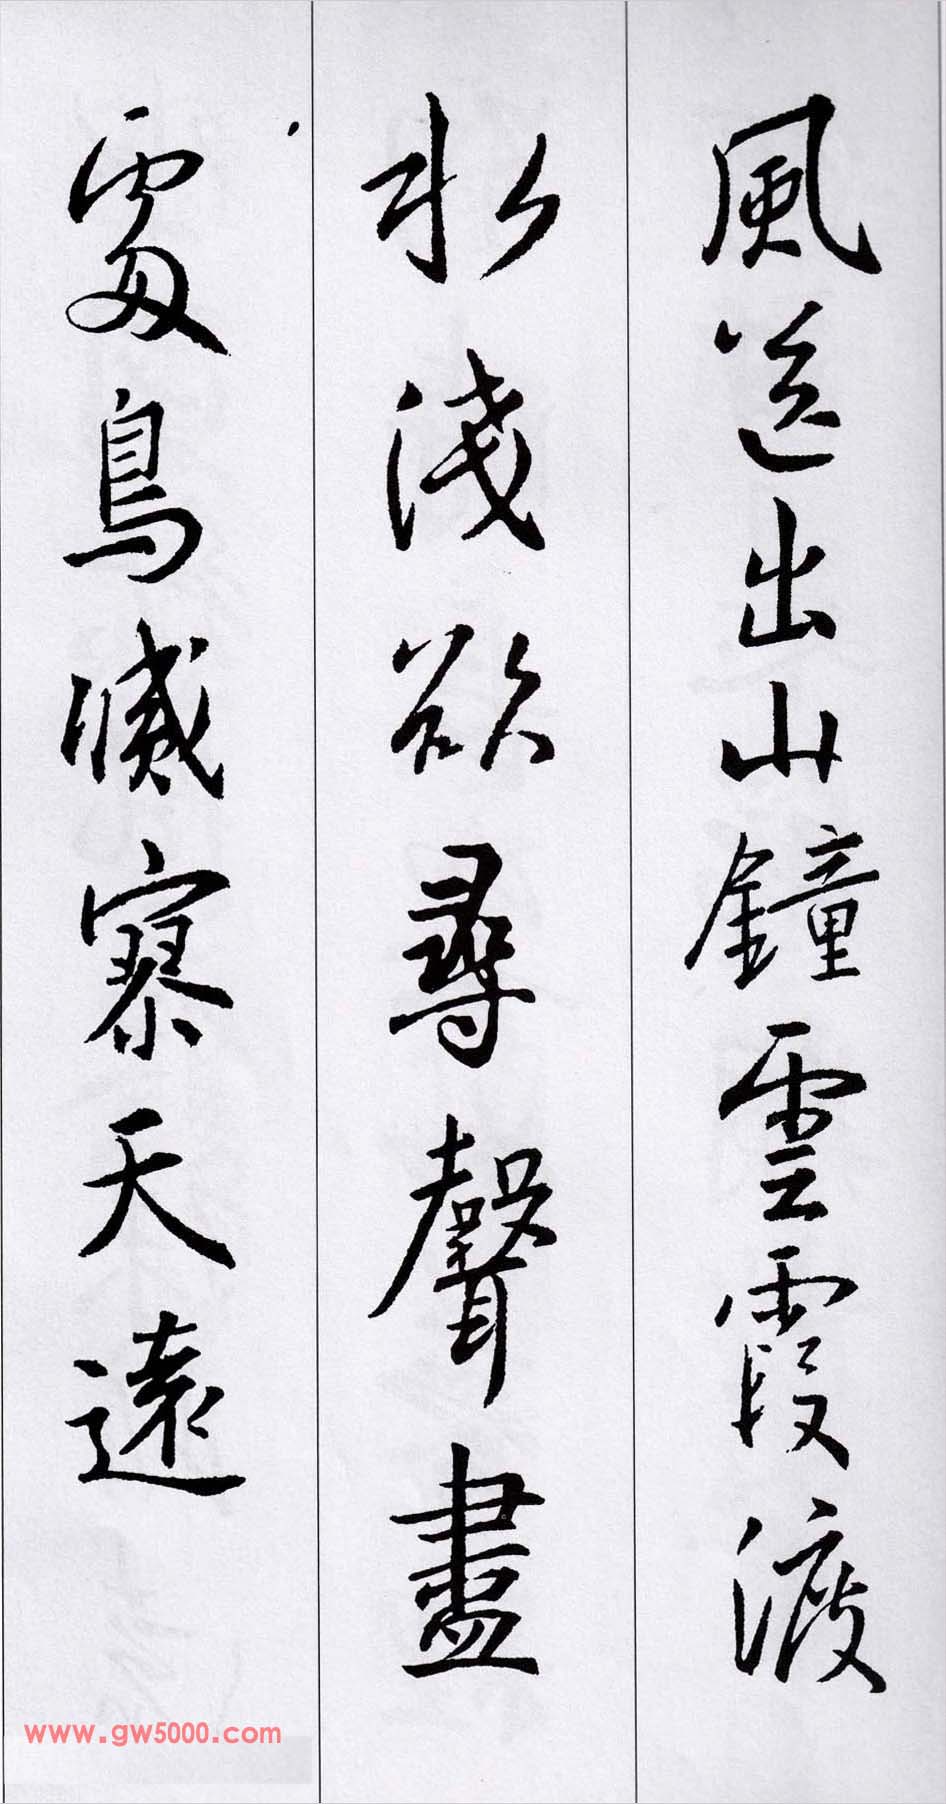 風送出山鐘雲霞渡
水淺欲尋聲盡
處鳥滅寥天遠
www.gw5000.com